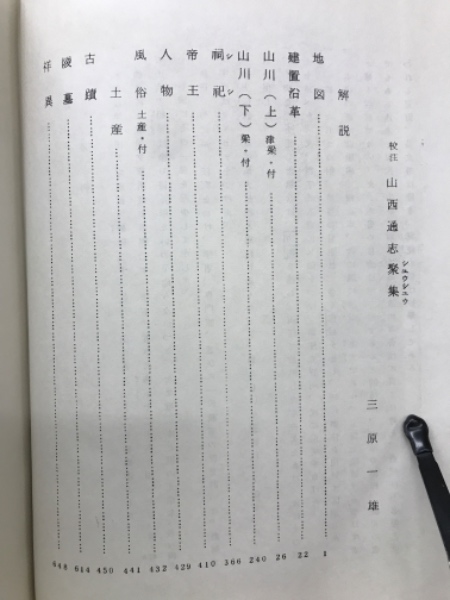 校注 山西通志聚集
シユウシユウ
三原一雄
解説
地図 1
建置沿革 22
山川(上) 津梁・付 26
山川(下) 梁・付 240
祠祀 366
シシ
帝王 410
人物 429
風俗 土産・付 432
土産 441
古蹟 450
陵墓 614
祥異 648